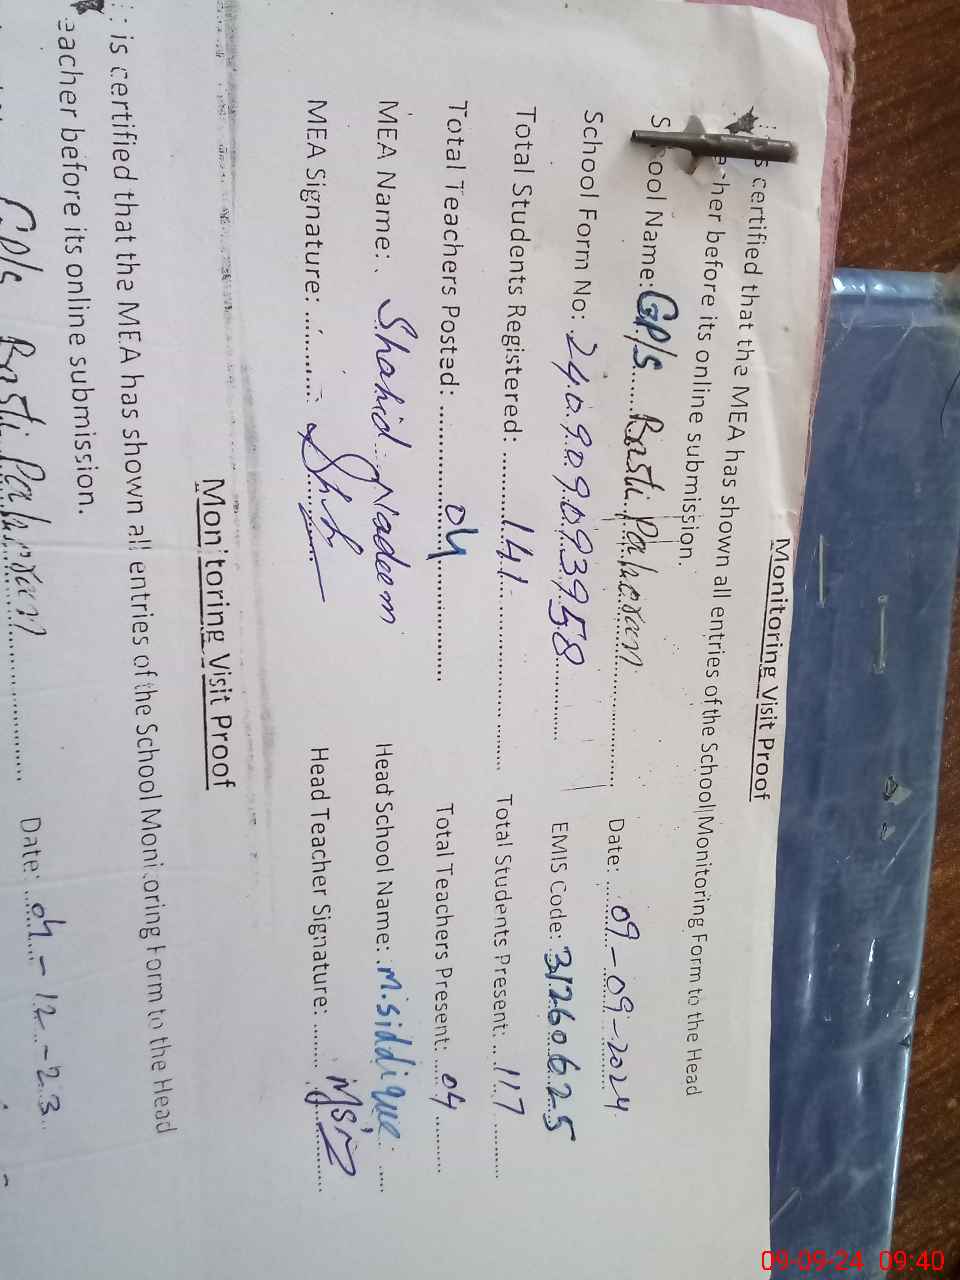 Monitoring Visit Proof
is certified that the MEA has shown all entries of the School Monitoring Form to the Head
eacher before its online submission.
School Name: GP/s Basti Palucram Date: 09-09-2024
School Form No: 24090909 3958 EMIS Code: 31260625
Total Students Registered: 141 Total Students Present: 117
Total Teachers Posted: 04 Total Teachers Present: 04
MEA Name: Shahid Nadeem Head School Name: M.siddique
MEA Signature: Head Teacher Signature:
Monitoring Visit Proof
is certified that the MEA has shown all entries of the School Monitoring Form to the Head
eacher before its online submission.
GP/s Basti Date: 04-12-23
09-09-24 09:40